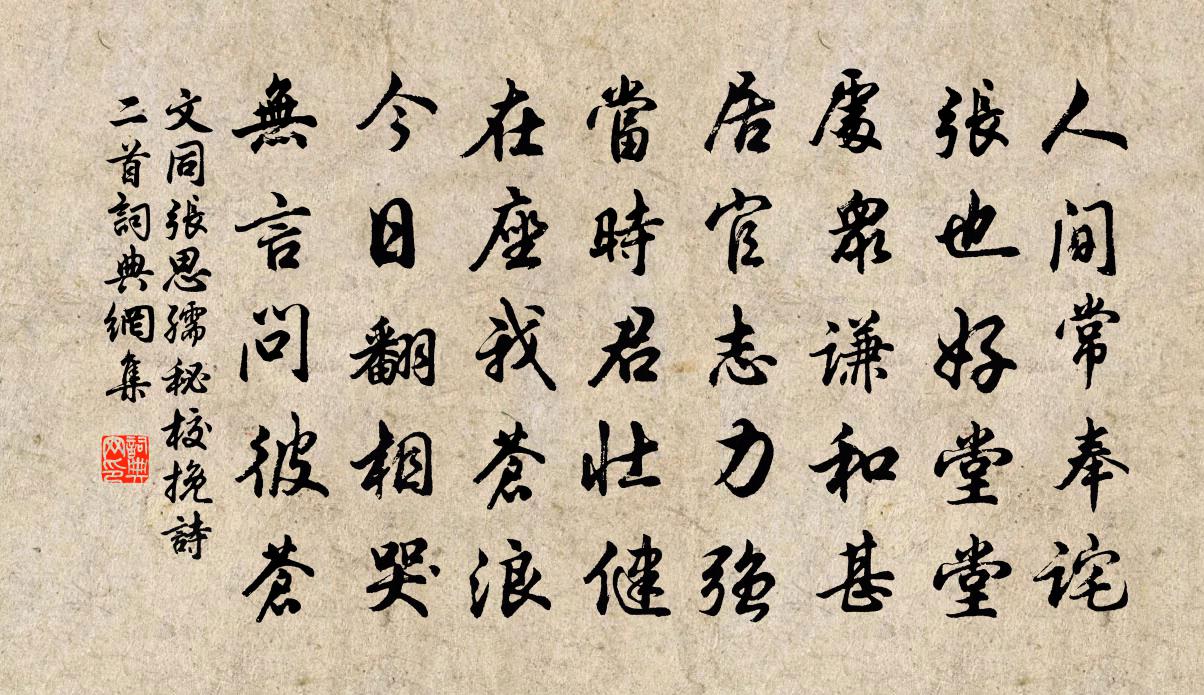 人間常奉詫
張也好堂堂
處眾謙和甚
居官志力強
當時君壯健
在座我蒼浪
今日翻相哭
無言問彼蒼
文同張思孺秘校挽詩
二首詞典網集
詞典
网印